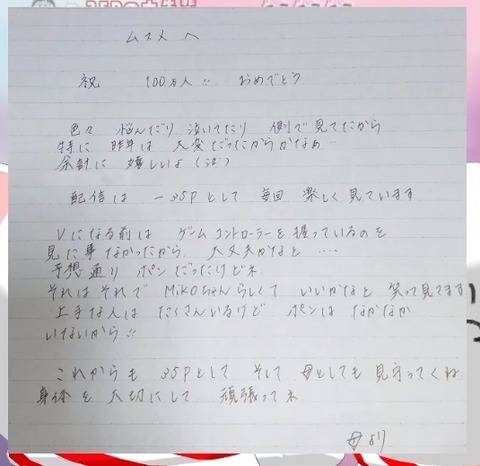 ムスメへ
祝 100万人!! おめでとう
色々 悩んだり 泣いてたり 側で見てたから
特に 昨年は 大変だったからかなぁ…
余計に 嬉しいよ(泣)
配信は 一35Pとして 毎回 楽しく 見ています
Vになる前は ゲームコントローラーを握っているのを
見た事なかったから 大丈夫かなと ‥‥
予想通り ポンだったけどネ
それはそれで MiKOちゃんらしくて いいかなと 笑って見てます
上手な人は たくさんいるけど ポンは なかなか
いないから!!
これからも 35Pとして そして 母としても 見守ってくね
身体を 大切にして 頑張ってネ
母より